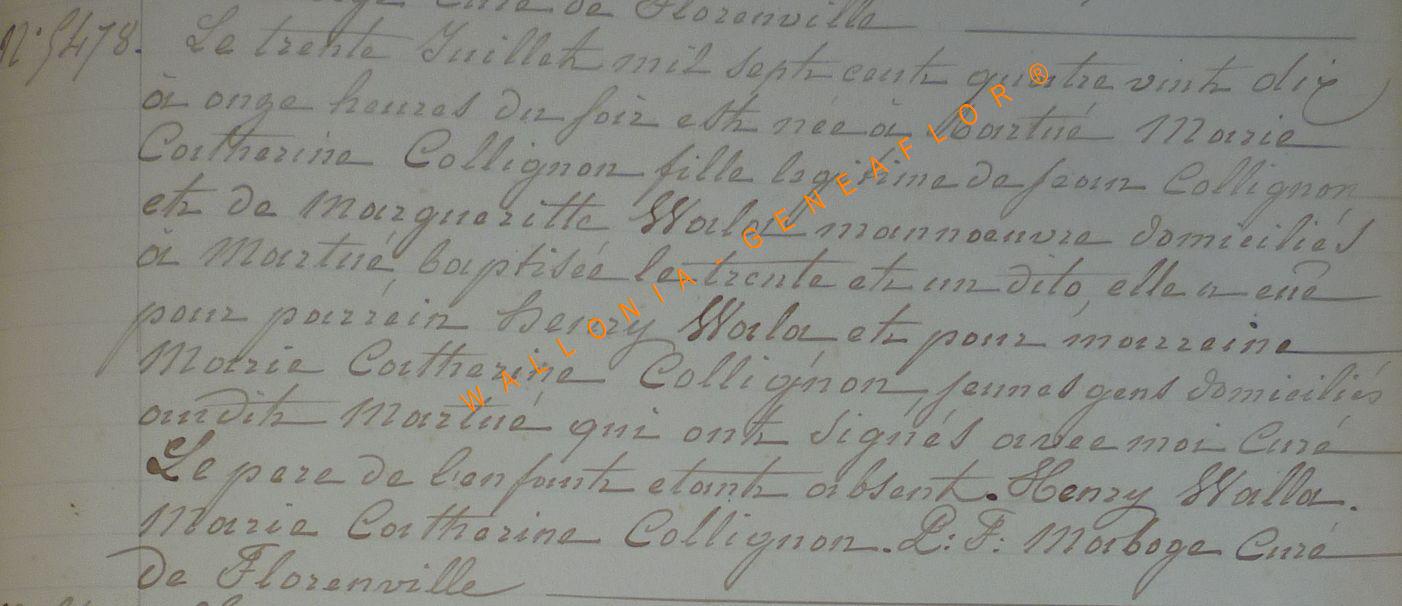 Curé de Florenville
N° 5478. Le trente Juillet mil sept cent quatre vint dix
à onze heures du soir est née à Martué Marie
Catherine Collignon fille legitime de Jean Collignon
et de Margueritte Wala mannoeuvre domiciliés
à Martué, baptisée le trente et un dito, elle a eue
pour parrein henry Wala et pour marreine
Marie Catherine Collignon jeunes gens domiciliés
audit Martué qui ont signés avec moi Curé
Le pere de l'enfant etant absent. Henry Walla.
Marie Catherine Collignon. P: F: Maboge Curé
de Florenville
WALLONIA - GENEAFLOR ®